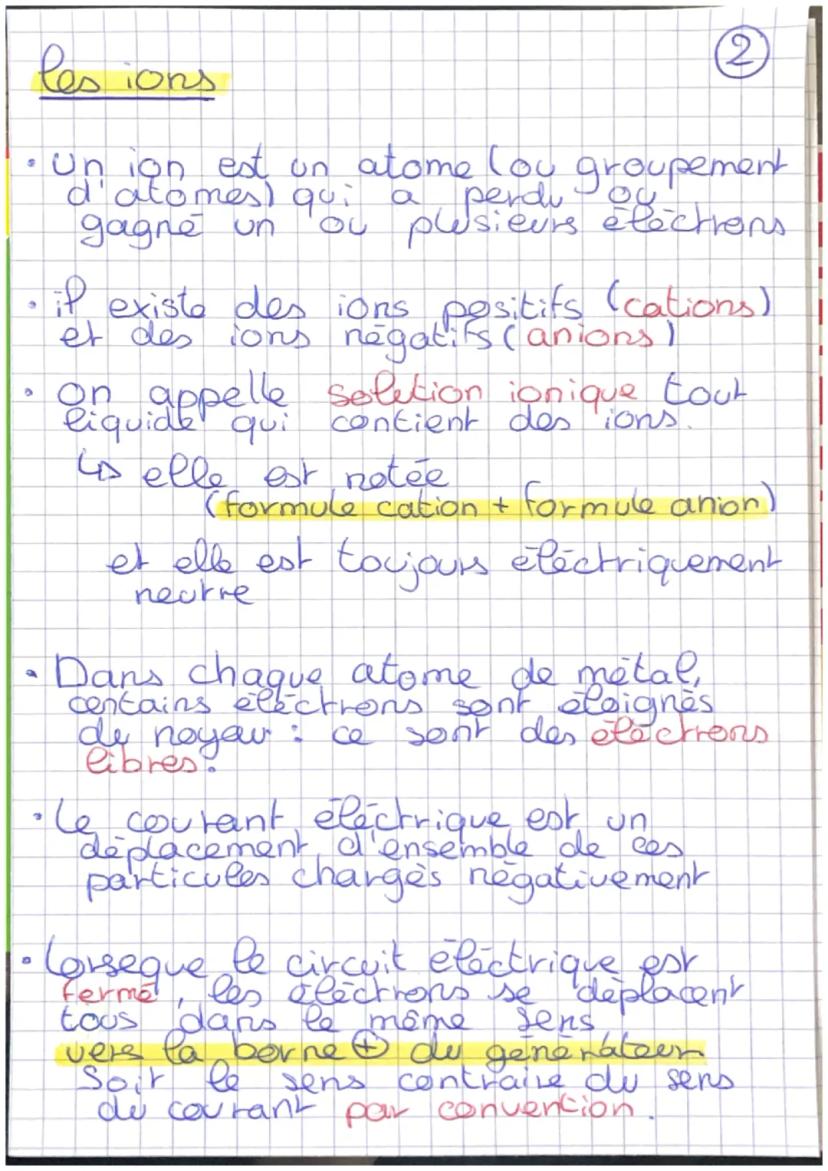 les ions
②
• un ion est un atome (ou groupement
d'atomes) qui a perdu ou
gagné un ou plusieurs éléctrons
• il existe des ions positifs (cations)
et des ions négatifs (anions)
• on appelle solution ionique tout
liquide qui contient des ions.
↳ elle est notée
(formule cation + formule anion)
et elle est toujours éléctriquement
neutre
• Dans chaque atome de métal,
certains éléctrons sont éloignés
du noyau : ce sont des éléctrons
libres.
• le courant éléctrique est un
déplacement d'ensemble de ces
particules chargés négativement
• lorseque le circuit éléctrique est
fermé, les éléctrons se déplacent
tous dans le même sens
vers la borne ⊕ du générateur
Soit le sens contraire du sens
du courant par convention.